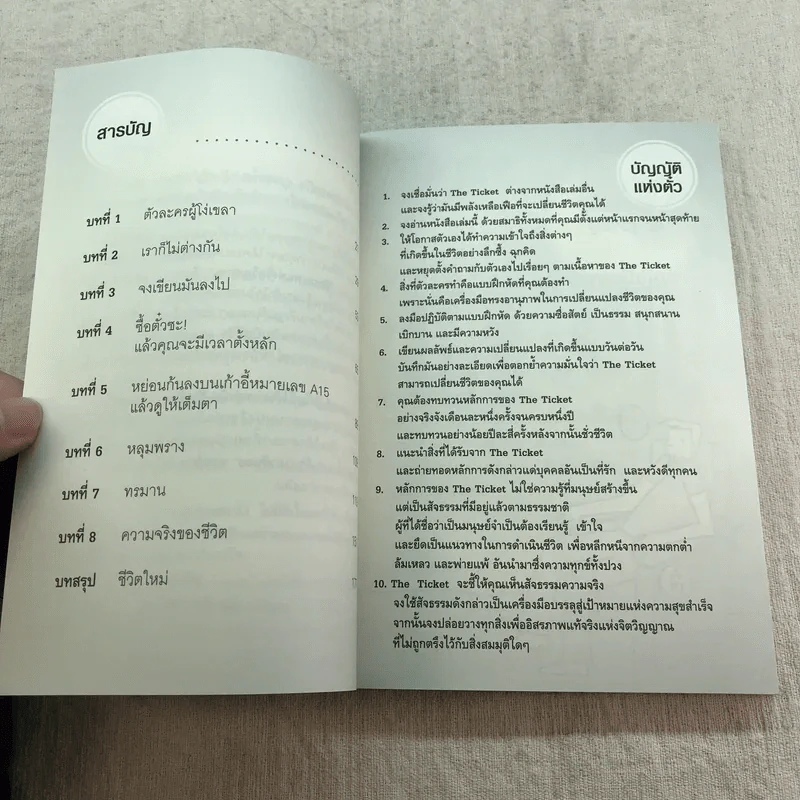 สารบัญ
บทที่ 1 ตัวละครผู้โง่เขลา
บทที่ 2 เราก็ไม่ต่างกัน
บทที่ 3 จงเขียนมันลงไป
บทที่ 4 ซื้อตั๋วซะ!
แล้วคุณจะมีเวลาตั้งหลัก
บทที่ 5 หย่อนก้นลงบนเก้าอี้หมายเลข A15
แล้วดูให้เต็มตา
บทที่ 6 หลุมพราง
บทที่ 7 ทรมาน
บทที่ 8 ความจริงของชีวิต
บทสรุป ชีวิตใหม่
บัญญัติ
แห่งตั๋ว
1. จงเชื่อมั่นว่า The Ticket ต่างจากหนังสือเล่มอื่น
และจงรู้ว่ามันมีพลังเหลือเฟือที่จะเปลี่ยนชีวิตคุณได้
2. จงอ่านหนังสือเล่มนี้ ด้วยสมาธิทั้งหมดที่คุณมีตั้งแต่หน้าแรกจนหน้าสุดท้าย
3. ให้โอกาสตัวเองได้ทำความเข้าใจถึงสิ่งต่างๆ
ที่เกิดขึ้นในชีวิตอย่างลึกซึ้ง ฉุกคิด
และหยุดตั้งคำถามกับตัวเองไปเรื่อยๆ ตามเนื้อหาของ The Ticket
4. สิ่งที่ตัวละครทำคือแบบฝึกหัดที่คุณต้องทำ
เพราะนั่นคือเครื่องมือทรงอานุภาพในการเปลี่ยนแปลงชีวิตของคุณ
5. ลงมือปฏิบัติตามแบบฝึกหัด ด้วยความซื่อสัตย์ เป็นธรรม สนุกสนาน
เบิกบาน และมีความหวัง
6. เขียนผลลัพธ์และความเปลี่ยนแปลงที่เกิดขึ้นแบบวันต่อวัน
บันทึกมันอย่างละเอียดเพื่อตอกย้ำความมั่นใจว่า The Ticket
สามารถเปลี่ยนชีวิตของคุณได้
7. คุณต้องทบทวนหลักการของ The Ticket
อย่างจริงจังเดือนละหนึ่งครั้งจนครบหนึ่งปี
และทบทวนอย่างน้อยปีละสี่ครั้งหลังจากนั้นชั่วชีวิต
8. แนะนำสิ่งที่ได้รับจาก The Ticket
และถ่ายทอดหลักการดังกล่าวแด่บุคคลอันเป็นที่รัก และหวังดีทุกคน
9. หลักการของ The Ticket ไม่ใช่ความรู้ที่มนุษย์สร้างขึ้น
แต่เป็นสัจธรรมที่มีอยู่แล้วตามธรรมชาติ
ผู้ที่ได้ชื่อว่าเป็นมนุษย์จำเป็นต้องเรียนรู้ เข้าใจ
และยึดเป็นแนวทางในการดำเนินชีวิต เพื่อหลีกหนีจากความตกต่ำ
ล้มเหลว และพ่ายแพ้ อันนำมาซึ่งความทุกข์ทั้งปวง
10. The Ticket จะชี้ให้คุณเห็นสัจธรรมความจริง
จงใช้สัจธรรมดังกล่าวเป็นเครื่องมือบรรลุสู่เป้าหมายแห่งความสุขสำเร็จ
จากนั้นจงปล่อยวางทุกสิ่งเพื่ออิสรภาพแท้จริงแห่งจิตวิญญาณ
ที่ไม่ถูกตรึงไว้กับสิ่งสมมุติใดๆ